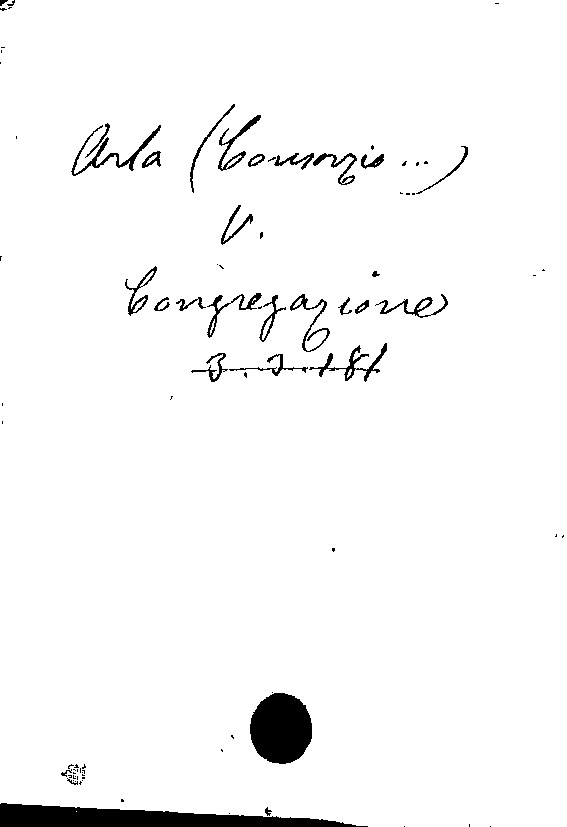 Arla (Consorzio...)
V.
Congregazione
3.3.181